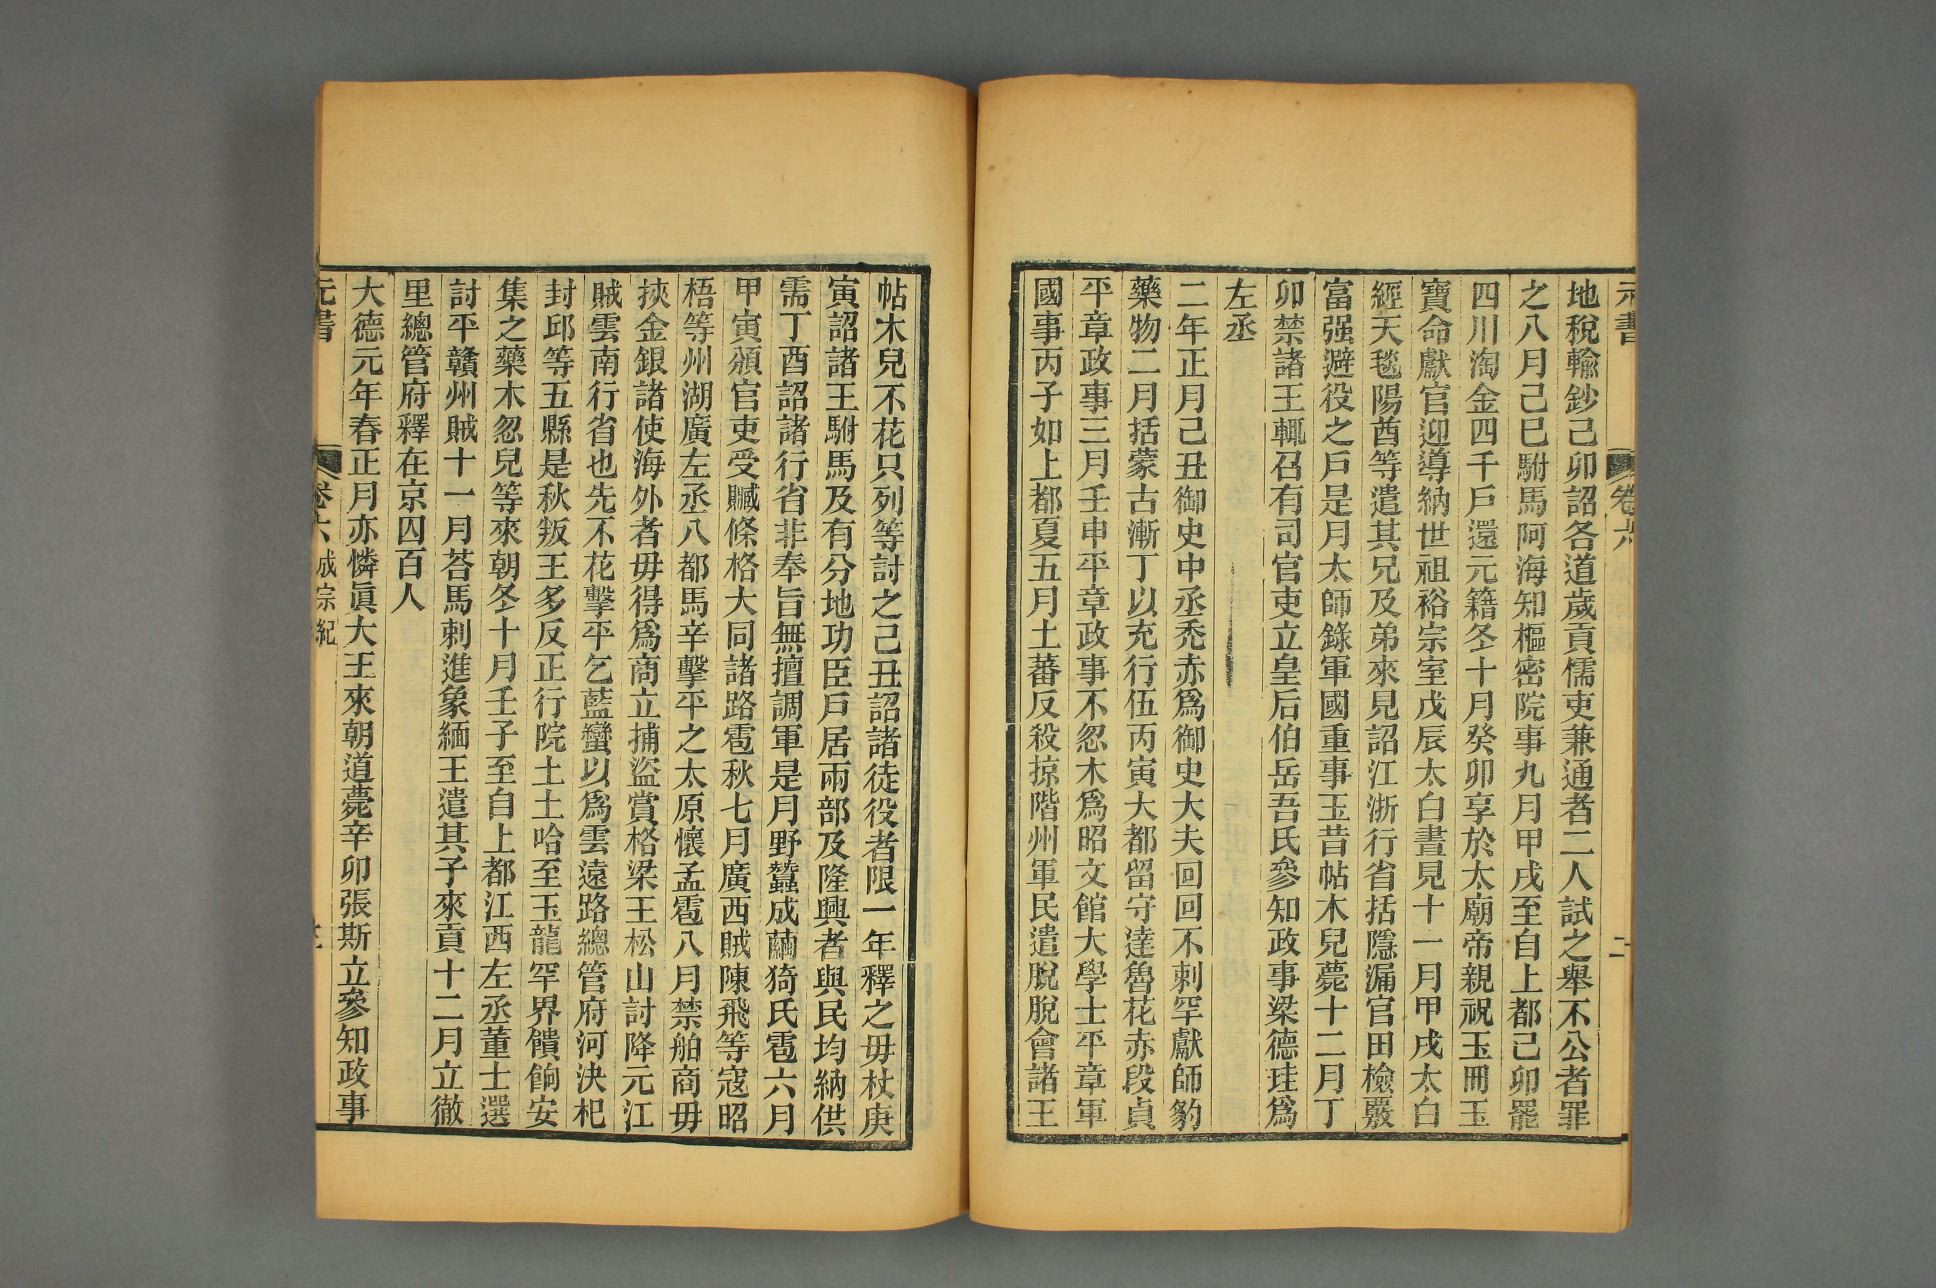 元書
卷六
二
地稅輸鈔己卯詔各道歲貢儒吏兼通者二人試之舉不公者罪
之八月己巳駙馬阿海知樞密院事九月甲戌至自上都己卯罷
四川淘金四千戶還元籍冬十月癸卯享於太廟帝親祝玉冊玉
寶命獻官迎導納世祖裕宗室戊辰太白晝見十一月甲戌太白
經天毯陽酋等遣其兄及弟來見詔江浙行省括隱漏官田檢覈
富强避役之戶是月太師錄軍國重事玉昔帖木兒薨十二月丁
卯禁諸王輒召有司官吏立皇后伯岳吾氏參知政事梁德珪爲
左丞
二年正月己丑御史中丞禿赤爲御史大夫回回不剌罕獻師豹
藥物二月括蒙古漸丁以充行伍丙寅大都留守達魯花赤段貞
平章政事三月壬申平章政事不忽木爲昭文館大學士平章軍
國事丙子如上都夏五月土蕃反殺掠階州軍民遣脫脫會諸王
帖木兒不花只列等討之己丑詔諸徒役者限一年釋之毋杖庚
寅詔諸王駙馬及有分地功臣戶居兩部及隆興者與民均納供
需丁酉詔諸行省非奉旨無擅調軍是月野蠶成繭猗氏雹六月
甲寅頒官吏受贓條格大同諸路雹秋七月廣西賊陳飛等寇昭
梧等州湖廣左丞八都馬辛擊平之太原懷孟雹八月禁舶商毋
挾金銀諸使海外者毋得爲商立捕盜賞格梁王松山討降元江
賊雲南行省也先不花擊平乞藍蠻以爲雲遠路總管府河決杞
封邱等五縣是秋叛王多反正行院土土哈至玉龍罕界饋餉安
集之藥木忽兒等來朝冬十月壬子至自上都江西左丞董士選
討平贛州賊十一月荅馬剌進象緬王遣其子來貢十二月立徹
里總管府釋在京囚百人
大德元年春正月亦憐眞大王來朝道薨辛卯張斯立參知政事
元書
卷六 成宗紀